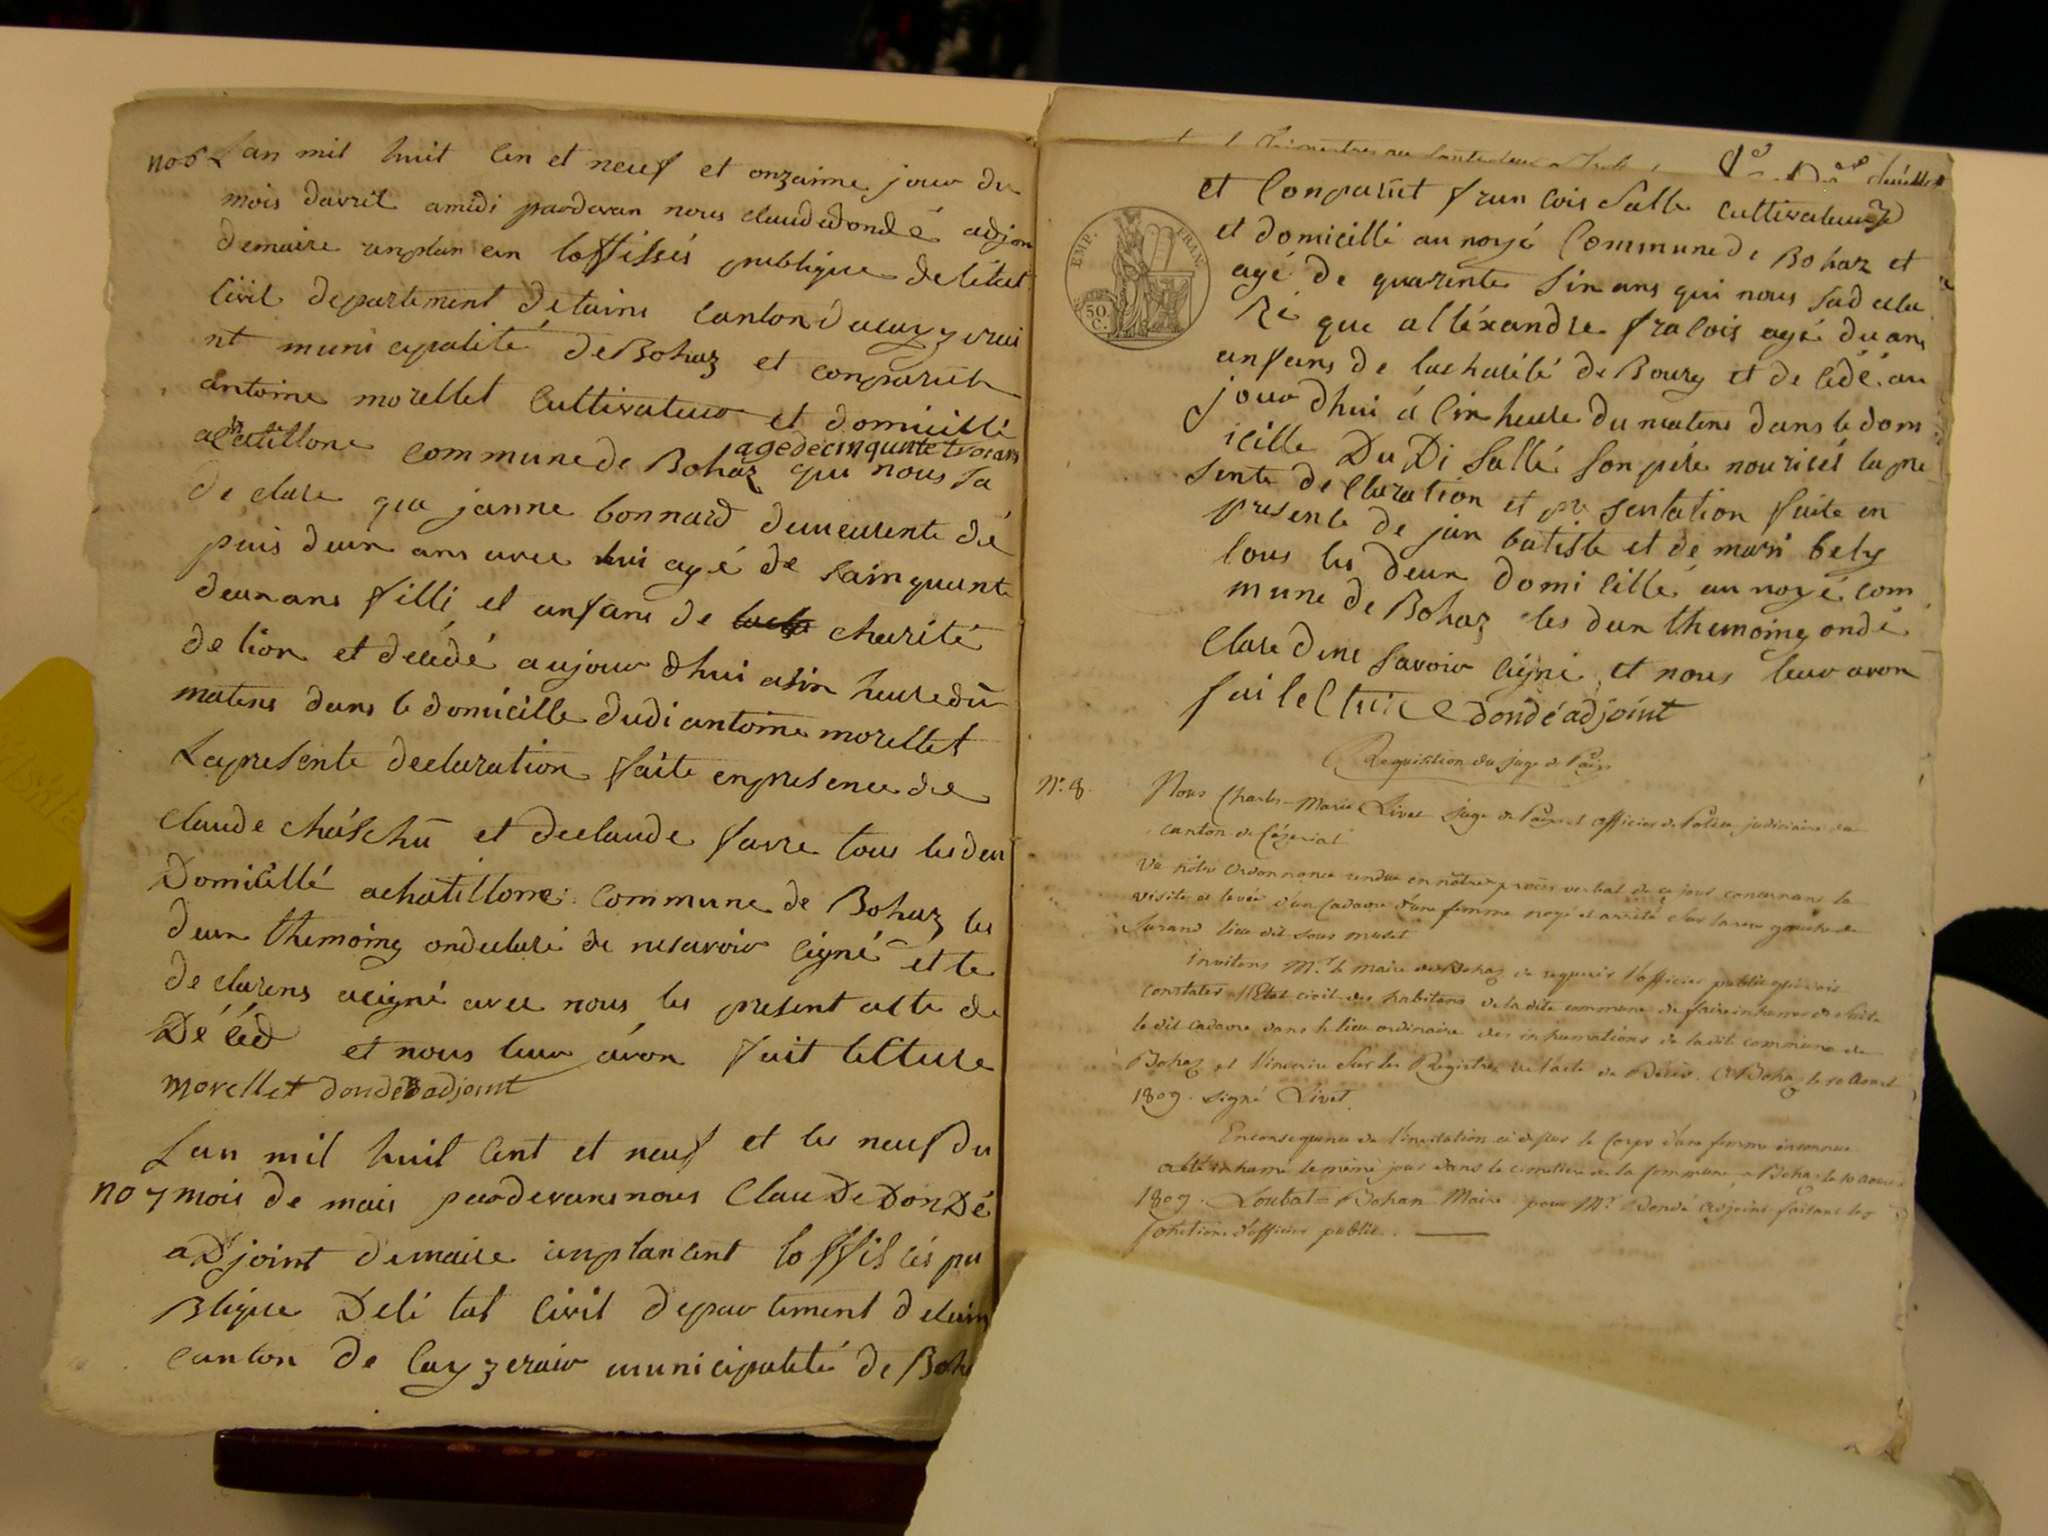 no 6 Lan mil huit Cen et neuf et onzaime jour du
mois davril amidi pardevan nous claudedondé adjon
demaire anplan cen loffissiés publique deletat
Civil departement delains Canton deceyzerai
nt municipalité deBohaz et conparuit
antoine morellet Cultivateur et domicillé
agedecinquntetroians
achatillone commune de Bohaz qui nous fa
declare que janne bonnard demeurente dé
puis deux ans avec lui agé de cainquante
deuxans filli et anfans de charité
de lion et décédé aujour dhui asin heuredu
matens dans le domicille dudi antoine morellet
Lapresente declaration faite enpresence de
claude et declaude favre tous lesdeu
Domicillé achatillone commune de Bohaz les
deux themoing ondeclaré de nesavoir cigné et le
declarens acigné avec nous les present acte de
Décéd et nous leur avon fait lecture
morellet dondé adjoint
Lan mil huit Cent et neuf et les neuf du
no 7 mois de mais pardevans nous ClauDeDonDé
aDjoint demaire anplancent loffisciés pu
Blique Deli tat Civil departement delain
canton de Cayzerair municipalité de Boh
et Conparuit francois Salle cultivateur
et domicillé au noyé Commune de Bohaz et
EMP. FRAN.
50. C.
agé de quarente sinans qui nous fadecla
ré que alléxandre fracois agé duans
anfans de lacharité de Bourg et decédé au
jour dhui á Cinheure du matens dans le dom
icille Du Di Sallé Son pére nouricié lapre
sente declaration et pre sentation faite en
presente de jan batiste et de marri bely
tous les deux domicillé au noyé com
mune de Bohaz les deux themoing ondé
Clare dene Savoir cigné et nous leur avon
fai lecture Dondé adjoint
Requisition du juge de Paix
N.° 8. Nous Charles-Marie Livet Juge de Paix et officier de Police judiciaire du
canton de Cézeriat
Vu nôtre ordonnance rendue en nôtre procès verbal de ce jour concernant la
visite et levée d'un cadavre d'une femme noyé et arrêté sur la rive gauche de
Surand lieu dit sous
invitons Mr. le maire de Bohaz de requerir l'officier public qui doit
constater l'Etat civil des habitans de la dite commune de faire inhumer de suite
le dit cadavre dans le lieu ordinaire des inhumations de la dite commune de
Bohaz et l'inscrire sur les Registres de l'acte de Décès. à Bohaz le 10
1809. Signé Livet.
En consequence de l'invitation ci dessus le Corps d'une femme inconnue
a été inhumé le même jour dans le cimetière de la commune, à Bohaz le 10
1809. Loubat = Bohan Maire pour Mr. Dondé adjoint faisant les
fonctions d'officier public.